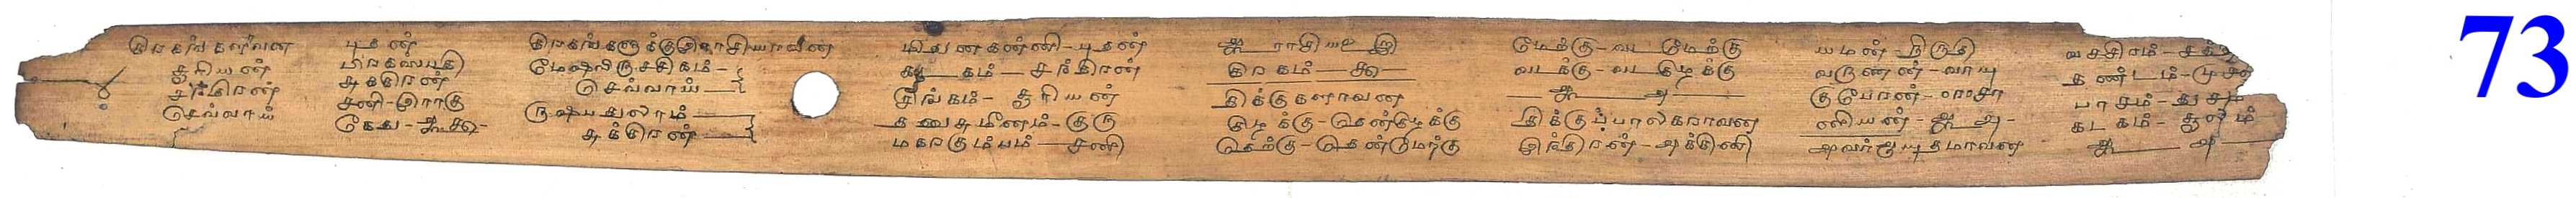 கிரகங்களாவன
சூரியன்
சந்திரன்
செவ்வாய்
புதன்
பிரகஸ்பதி
சுக்கிரன்
சனி-ராகு
கேது-ஆ௯-
கிரகங்களுக்கு ராசியாவன
மேஷவிருச்சிகம்-
செவ்வாய்
ருஷபதுலாம்
சுக்கிரன்
மிதுனகன்னி-புதன்
கடகம்-சந்திரன்
சிங்கம்-சூரியன்
தனுசுமீனம்-குரு
மகரகும்பம்-சனி
ஆ ராசி ௰௨க்கு
கிரகம்-௯-
திக்குகளாவன
கிழக்கு-தென்கிழக்கு
தெற்கு-தென்மேற்கு
மேற்கு-வடமேற்கு
வடக்கு-வடகிழக்கு
ஆ ௮
திக்குப்பாலகராவன
இந்திரன்-அக்கினி
யமன்-நிருதி
வருணன்-வாயு
குபேரன்-ஈசா
னியன்-ஆ ௮-
அவர்ஆயுதமாவன
வச்சிரம்-சத்தி
தண்டம்-
பாசம்-
கடகம்-சூலம்
ஆ ௮
73